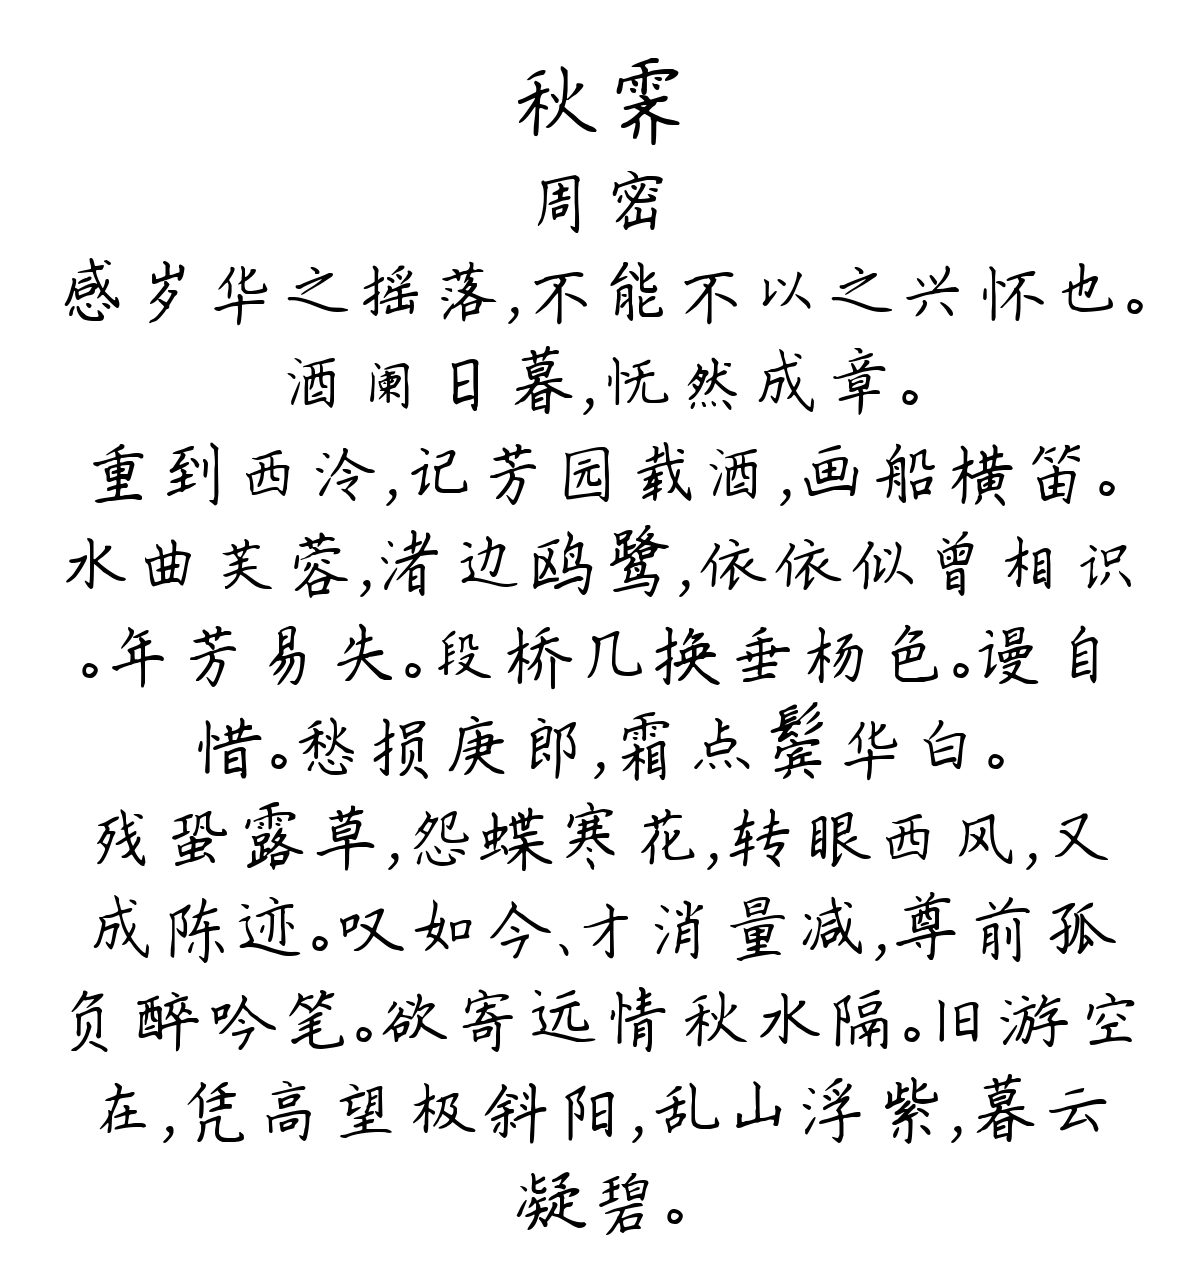 秋霁
周密
感岁华之摇落,不能不以之兴怀也。
酒阑日暮,怃然成章。
重到西泠,记芳园载酒,画船横笛。
水曲芙蓉,渚边鸥鹭,依依似曾相识
。年芳易失。段桥几换垂杨色。谩自
惜。愁损庾郎,霜点鬓华白。
残蛩露草,怨蝶寒花,转眼西风,又
成陈迹。叹如今、才消量减,尊前孤
负醉吟笔。欲寄远情秋水隔。旧游空
在,凭高望极斜阳,乱山浮紫,暮云
凝碧。